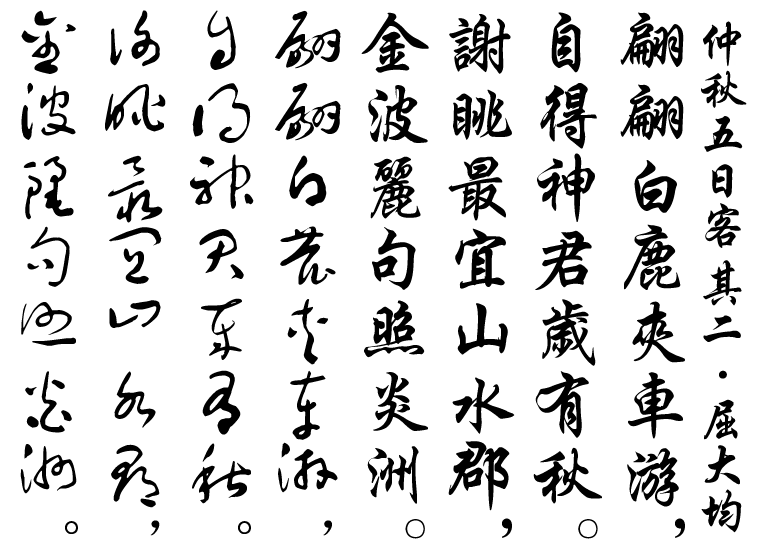 仲秋五日客其二·屈大均
翩翩白鹿夾車游，
自得神君歲有秋。
謝眺最宜山水郡，
金波麗句照炎洲。
翩翩白鹿夾車游，
自得神君歲有秋。
謝眺最宜山水郡，
金波麗句照炎洲。